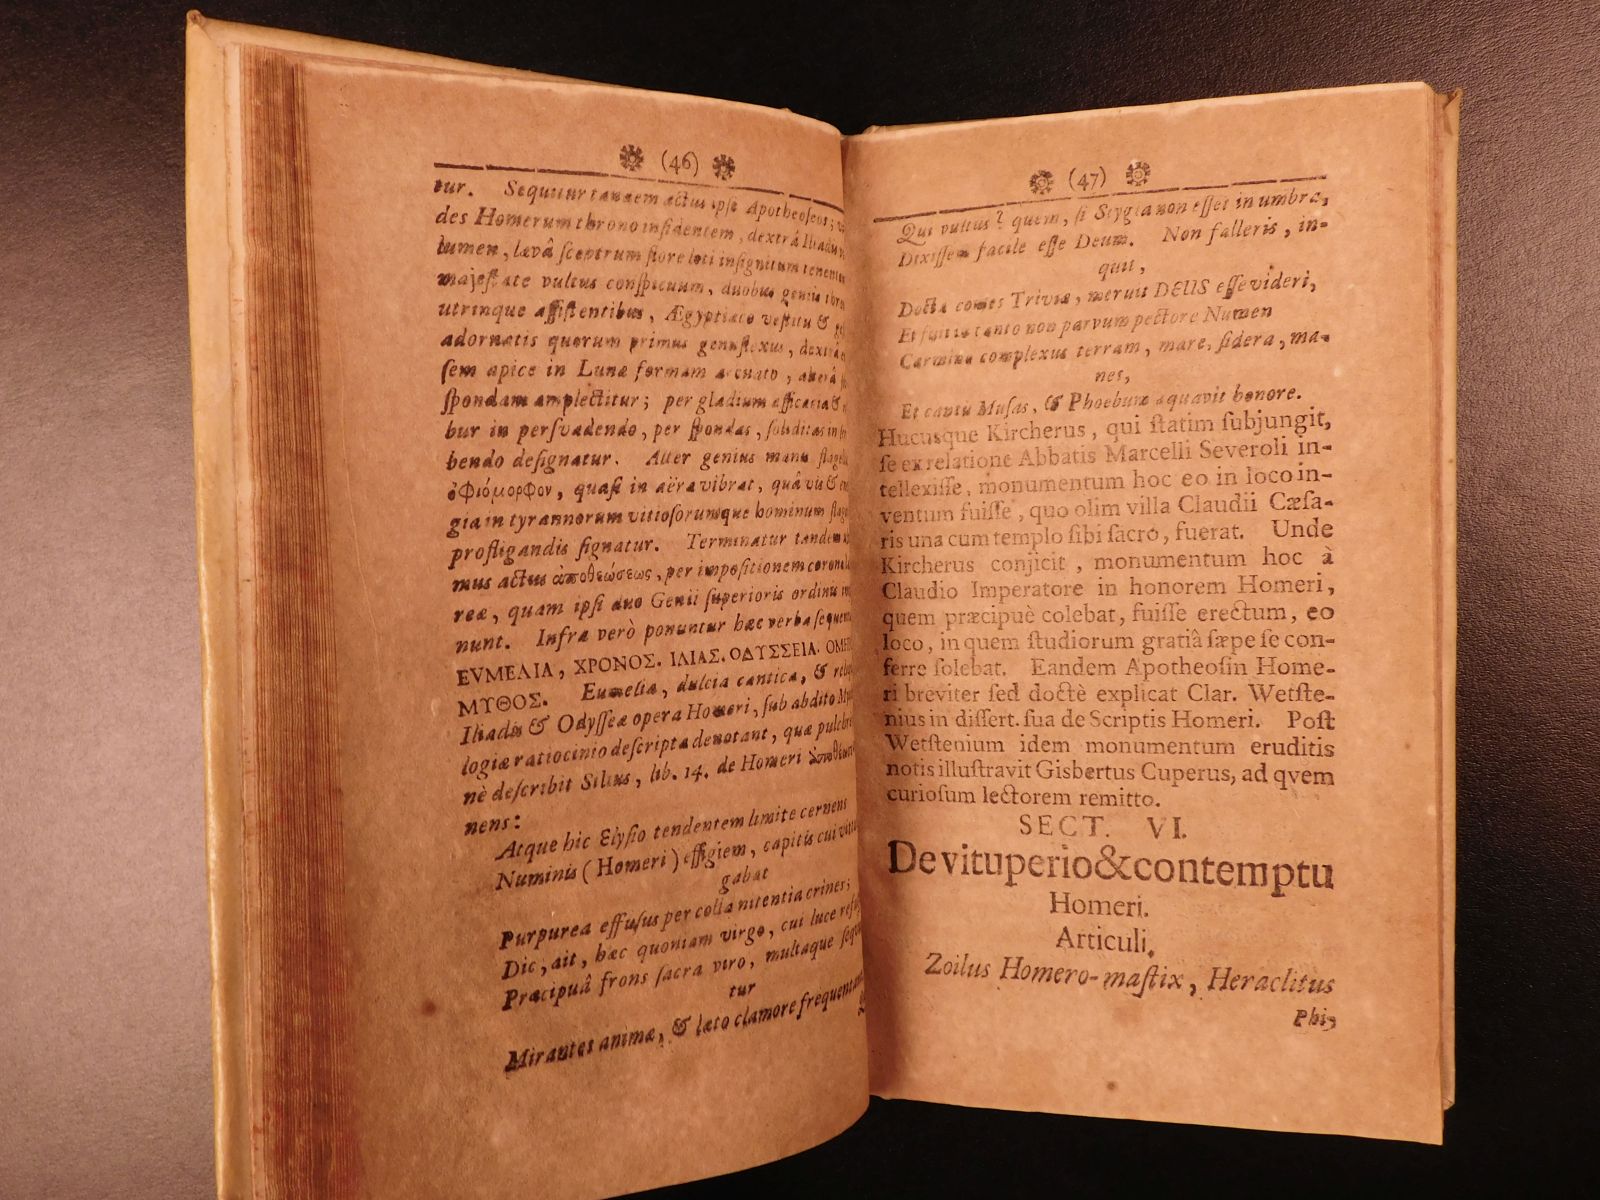 (46)
tur. Sequitur tandem actus ipse Apotheoſeos;
des Homerum throno inſidentem, dextrâ Iliadu
lumen, lævâ ſceptrum flore loti inſignitum
majeſtate vultus conſpicuum, duobus geniis
utrinque aſſiſtentibus, Ægyptiaco veſtitu &
adornatis quorum primus genuflexus,
ſem apice in Lunæ formam arcuato,
ſpondam amplectitur; per gladium efficacia &
bur in perſvadendo, per ſpondas, ſoliditas in
bendo deſignatur. Alter genius manu
ὀφιόμορφον, quaſi in aëra vibrat, quâ vis &
gia in tyrannorum vitioſorumque hominum
profligandis ſignatur. Terminatur tandem
mus actus ἀποθεώσεως, per impoſitionem
reæ, quam ipſi duo Genii ſuperioris ordinis
nunt. Infra verò ponuntur hæc verba
EVMELIA, ΧΡΟΝΟΣ. ΙΛΙΑΣ. ΟΔΥΣΣΕΙΑ.
ΜΥΘΟΣ. Eumelia, dulcia cantica, &
Iliadis & Odyſſeæ opera Homeri, ſub abdito
logiæ ratiocinio deſcripta denotant, quæ
nè deſcribit Silius, lib. 14. de Homeri
nens:
Atque hic Elyſio tendentem limite cernens
Numinis (Homeri) effigiem, capitis cui
gabat
Purpurea effuſus per colla nitentia crines;
Dic, ait, hæc quoniam virgo, cui luce
Præcipuâ frons ſacra viro, multaque
tur
Mirantes animæ, & læto clamore
(47)
Qui vultus? quem, ſi Stygia non eſſet in umbra,
Dixiſſem facile eſſe Deum. Non falleris, in-
quit,
Docta comes Triviæ, meruit DEUS eſſe videri,
Et fuit in tanto non parvum pectore Numen
Carmine complexus terram, mare, ſidera, ma-
nes,
Et cantu Muſas, & Phoebum æquavit honore.
Hucusque Kircherus, qui ſtatim ſubjungit,
ſe ex relatione Abbatis Marcelli Severoli in-
tellexiſſe, monumentum hoc eo in loco in-
ventum fuiſſe, quo olim villa Claudii Cæſa-
ris una cum templo ſibi ſacro, fuerat. Unde
Kircherus conjicit, monumentum hoc à
Claudio Imperatore in honorem Homeri,
quem præcipuè colebat, fuiſſe erectum, eo
loco, in quem ſtudiorum gratiâ ſæpe ſe con-
ferre ſolebat. Eandem Apotheoſin Home-
ri breviter ſed doctè explicat Clar. Wetſte-
nius in diſſert. ſua de Scriptis Homeri. Poſt
Wetſtenium idem monumentum eruditis
notis illuſtravit Gisbertus Cuperus, ad qvem
curioſum lectorem remitto.
SECT. VI.
De vituperio & contemptu
Homeri.
Articuli.
Zoilus Homero-maſtix, Heraclitus
Phi-